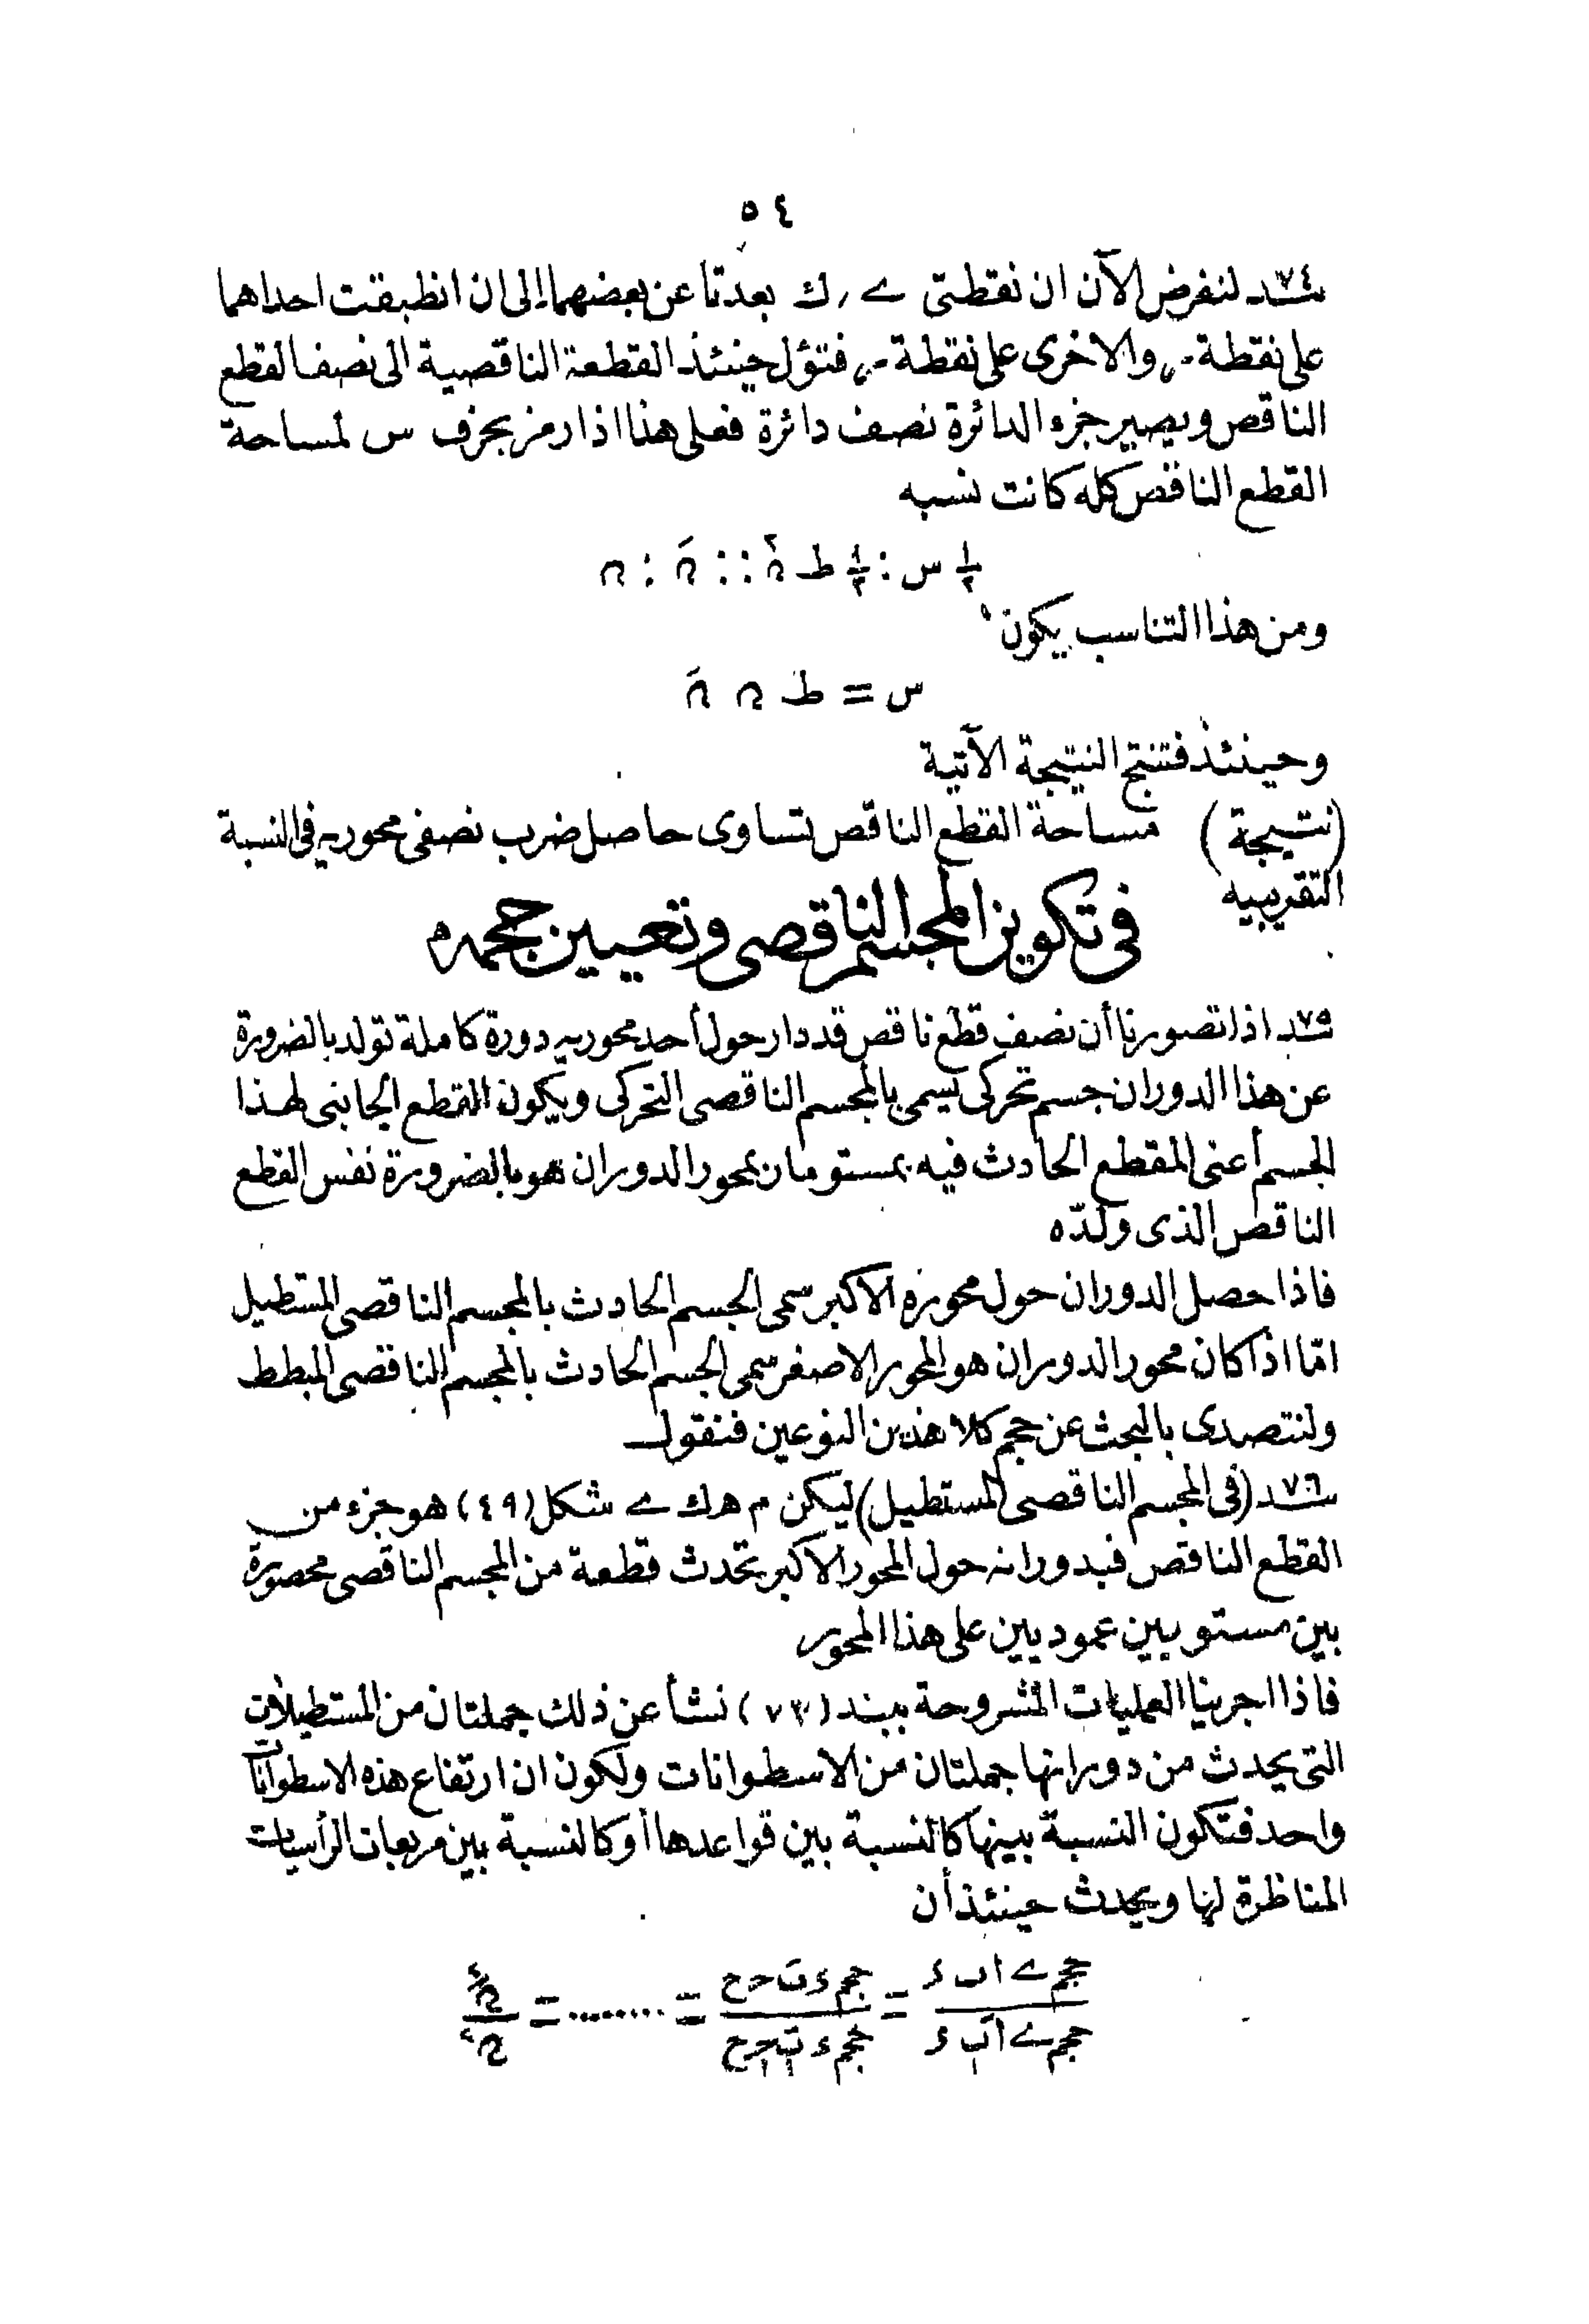 ٥٤
٧٤بند لنفرض الآن ان نقطتى ے , ك بعدتا عن بعضهما إلى ان انطبقت احداهما
على نقطة م والاخرى على نقطة م, فتؤل حينئذ القطعة الناقصية الى نصف القطع
الناقص ويصير جزء الدائرة نصف دائرة فعلى هذا اذا رمز بحرف س لمساحة
القطع الناقص كله كانت نسبه
١/٢ س : ١/٢ ط نَ٢ :: نَ : ن
ومن هذا التناسب يكون
س = ط ن نَ
وحينئذ فتنتج النتيجة الآتية
(نتيجة) مساحة القطع الناقص تساوى حاصل ضرب نصفى محوريه فى النسبة
التقريبيه
فى تكوين المجسم الناقصى وتعيين حجمه
٧٥بند اذا تصورنا أن نصف قطع ناقص قد دار حول أحد محوريه دورة كاملة تولد بالضرورة
عن هذا الدوران جسم تحركى يسمى بالمجسم الناقصى التحركى ويكون القطع الجانبى لهذا
الجسم أعنى المقطع الحادث فيه بمستو مار بمحور الدوران هو بالضرورة نفس القطع
الناقص الذى ولدّه
فاذا حصل الدوران حول محوره الاكبر سمى الجسم الحادث بالمجسم الناقصى المستطيل
امّا اذا كان محور الدوران هو المحور الاصغر سمى الجسم الحادث بالمجسم الناقصى المبطط
ولنتصدى بالبحث عن حجم كلا هذين النوعين فنقول
٧٦بند (فى المجسم الناقصى المستطيل) ليكن م ه ك ے شكل (٤٩) هو جزء من
القطع الناقص فبدورانه حول المحور الاكبر تحدث قطعة من المجسم الناقصى محصورة
بين مستويين عموديين على هذا المحور
فاذا اجرينا العمليات المشروحة ببند (٧٣) نشأ عن ذلك جملتان من المستطيلات
التى يحدث من دورانها جملتان من الاسطوانات ولكون ان ارتفاع هذه الاسطوانات
واحد فتكون النسبة بينها كالنسبة بين قواعدها أو كالنسبة بين مربعات الرأسيات
المناظرة لها ويحدث حينئذ أن
حجم ے ا ب ء / حجم ے اَ بَ ء = حجم ء ب ح ح / حجم ء بَ ح ح = ........ = نَ٢ / ن٢